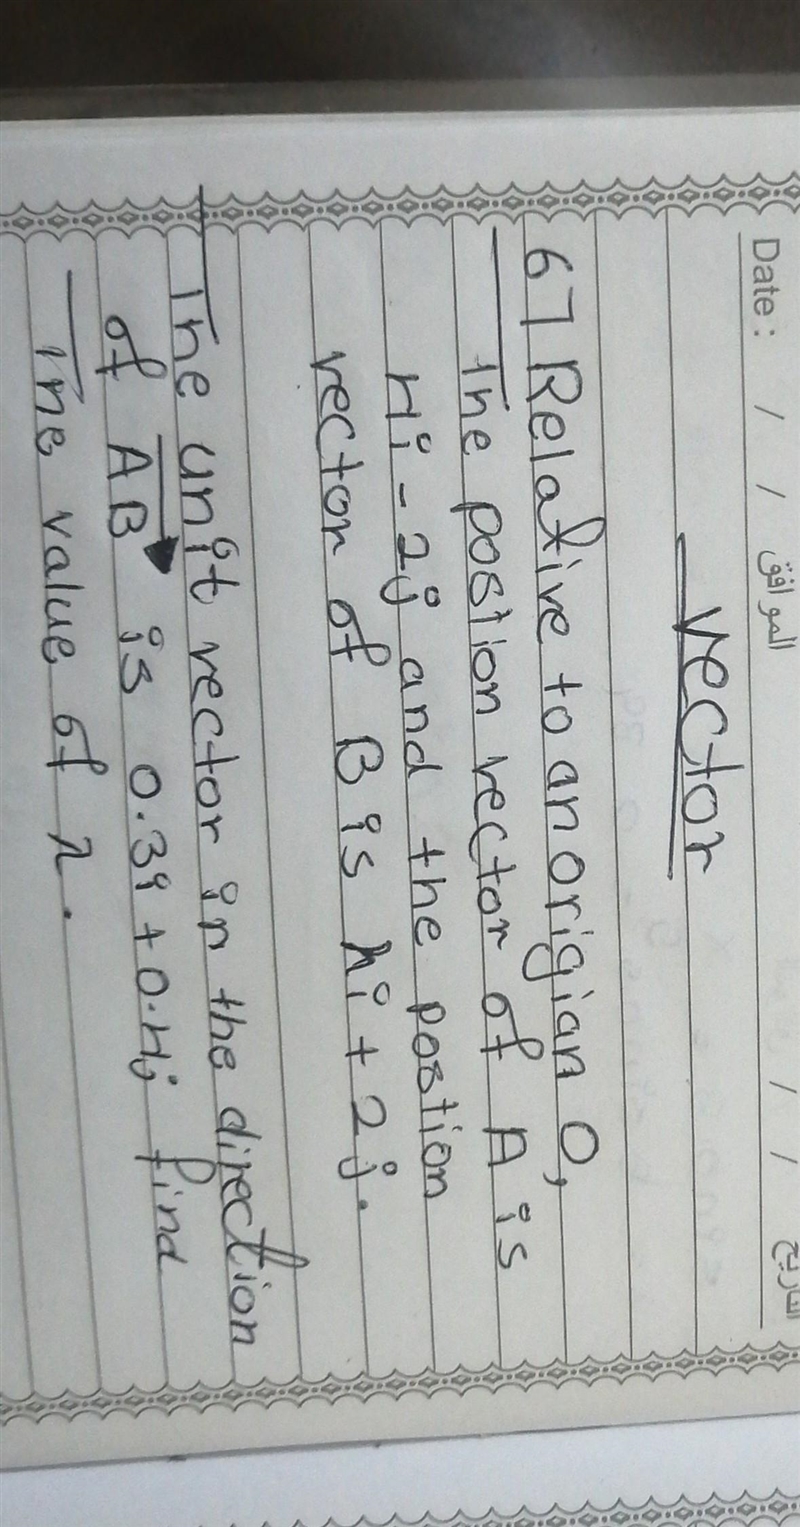 Date : / / الموافق / / التاريخ
vector
67 Relative to an origian O,
The postion vector of A is
4i - 2j and the postion
vector of B is λi + 2j.
The unit vector in the direction
of AB is 0.3i + 0.4j find
The value of λ.